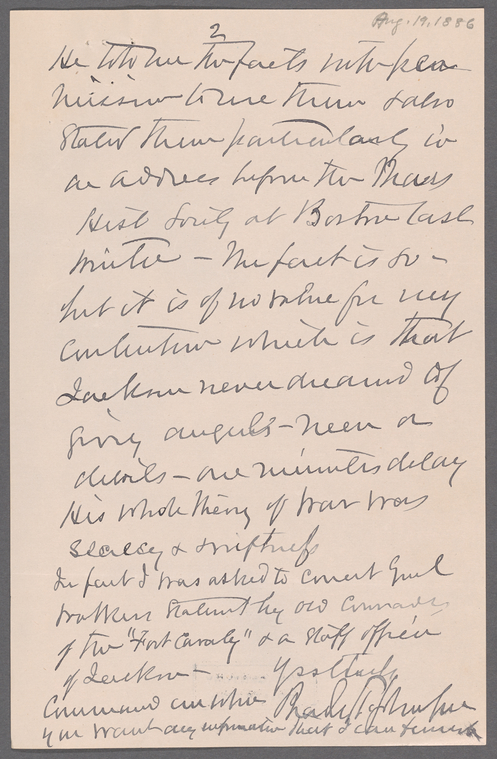 Aug. 19, 1886
2
He told me the facts with per
mission to use them & also
stated them particularly in
an address before the Mass
Hist Society at Boston last
winter – The fact is so –
but it is of no value for my
contention which is that
Jackson never dreamed of
giving angels – men or
devils – one minutes delay
His whole theory of War was
secrecy & swiftness
In fact I was asked to correct Genl
Walkers Statement by old Comrades
of the "Foot Cavalry" & a Staff officer
of Jackson –
Yrs truly
Command me when Bradley T Johnson
you want any information that I can furnish